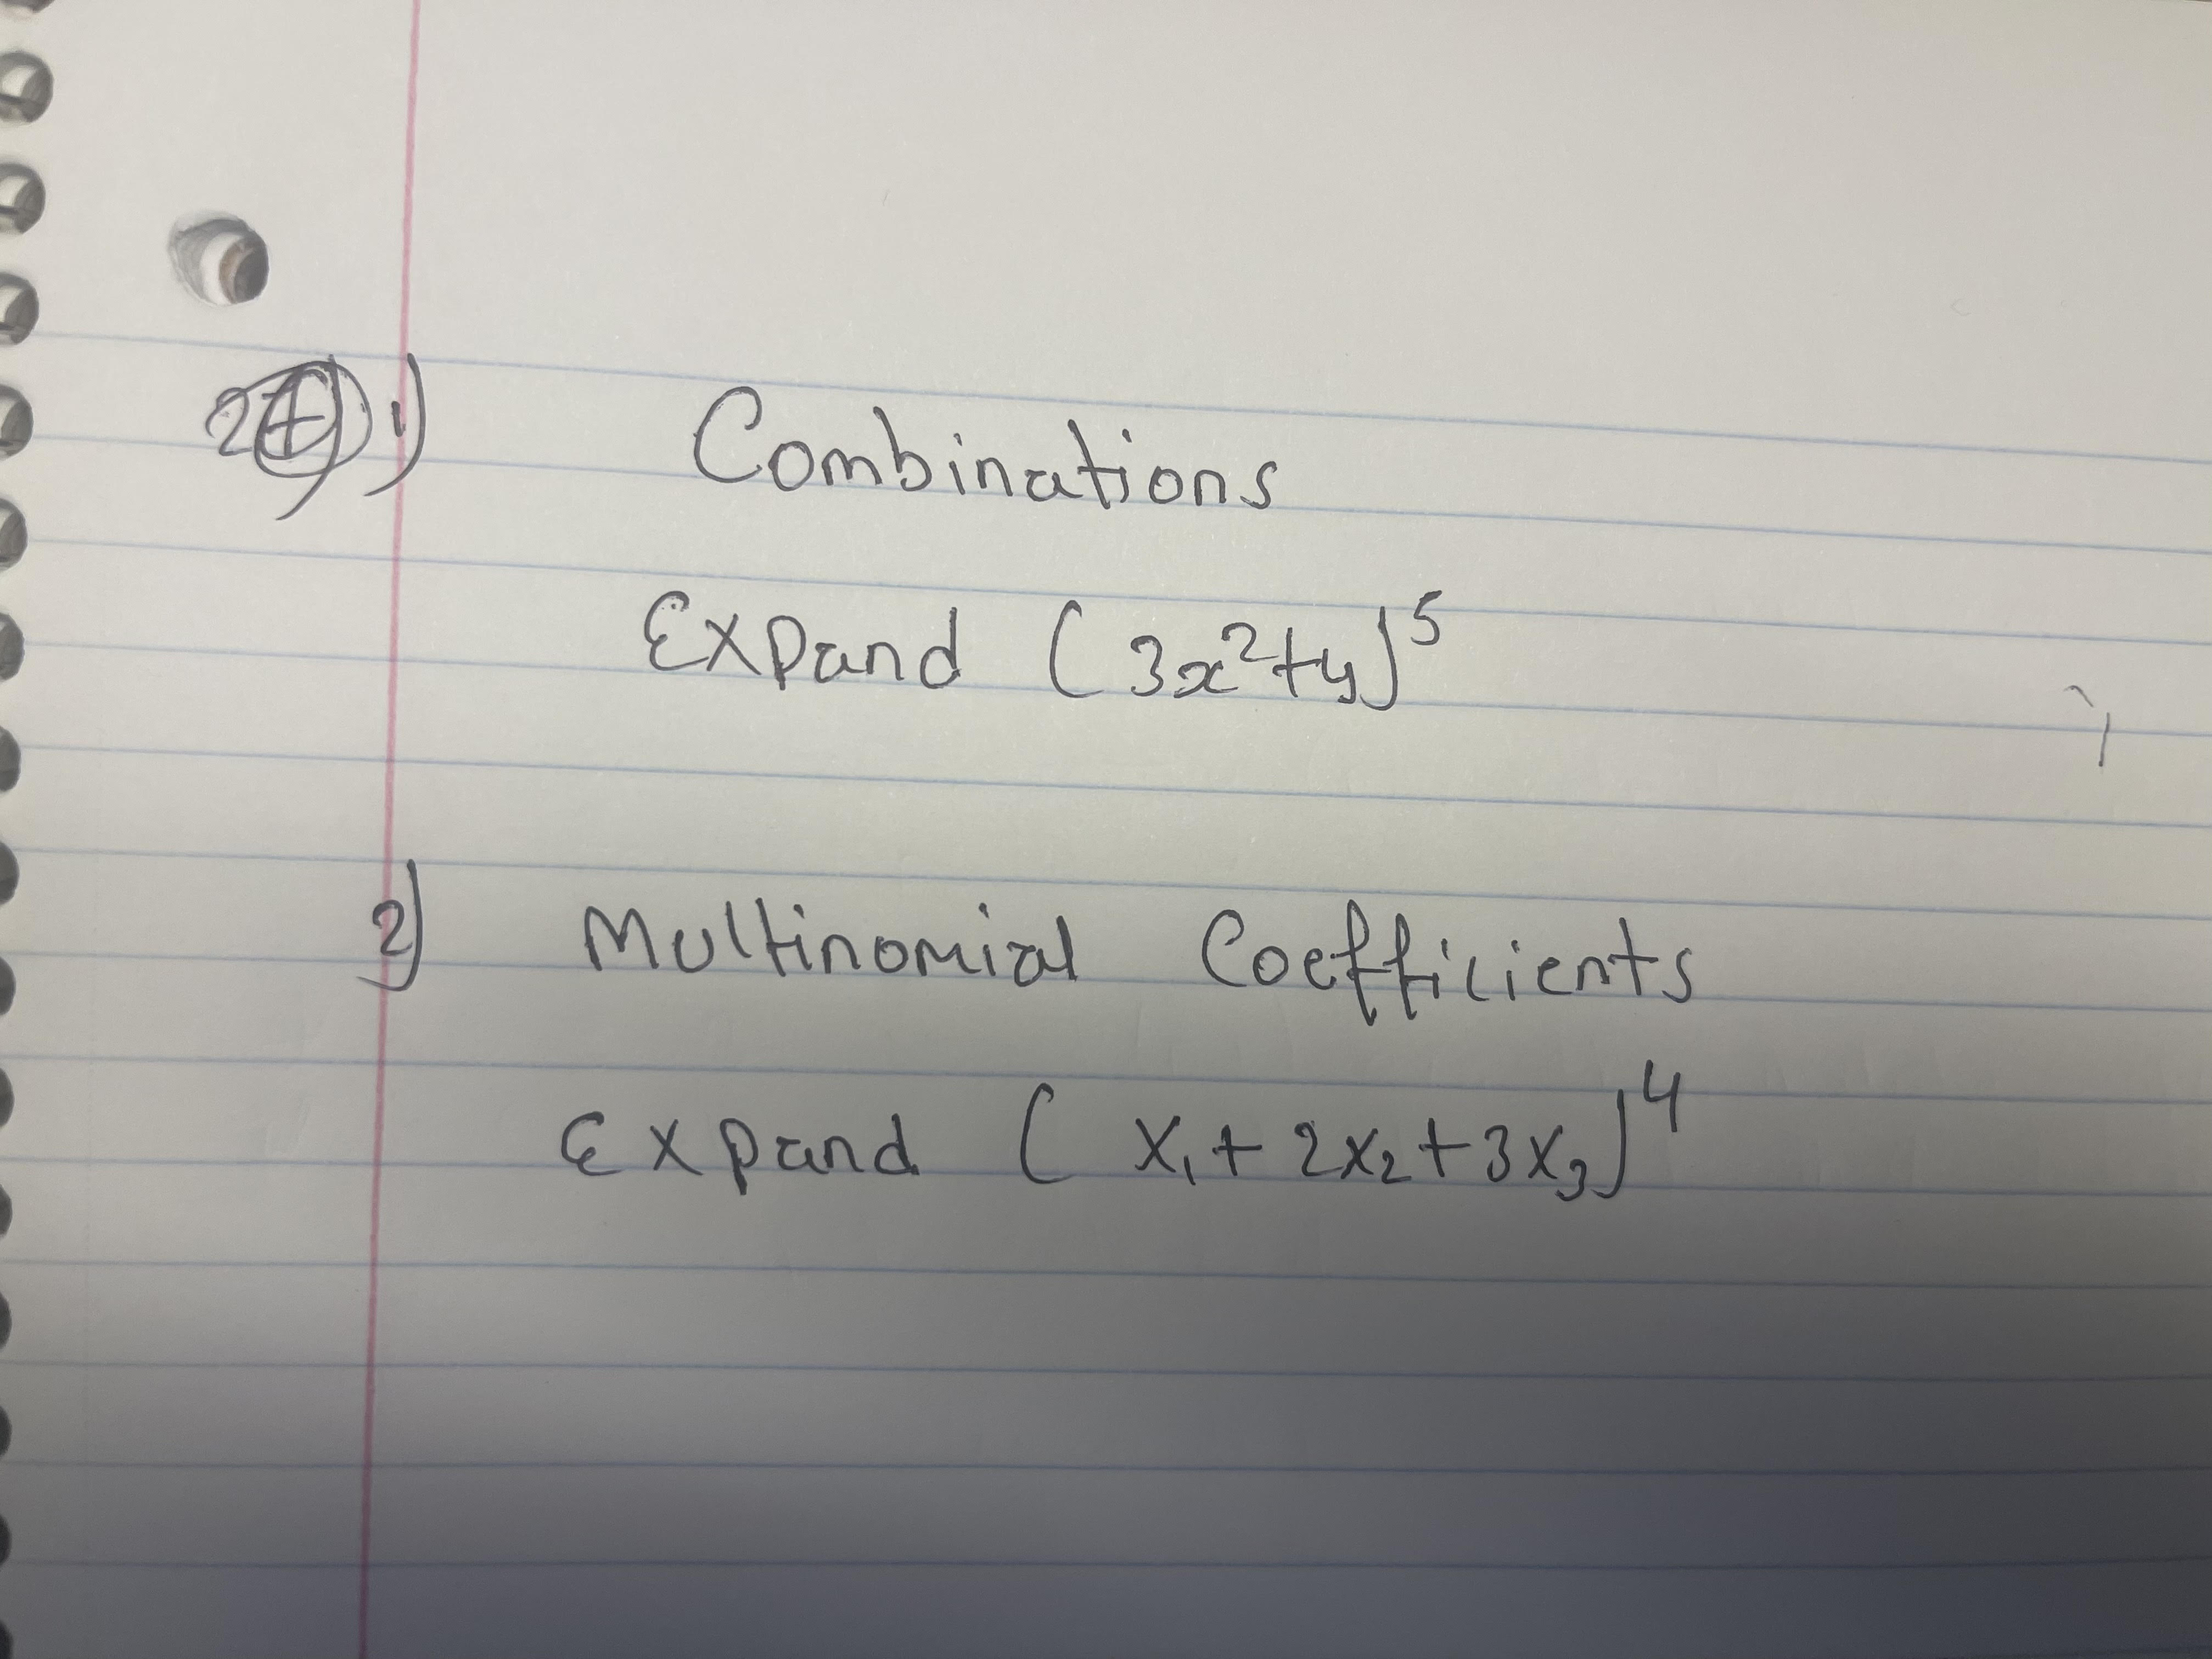 1) Combinations
Expand (3x²+y)⁵
2) Multinomial Coefficients
Expand (x₁+2x₂+3x₃)⁴